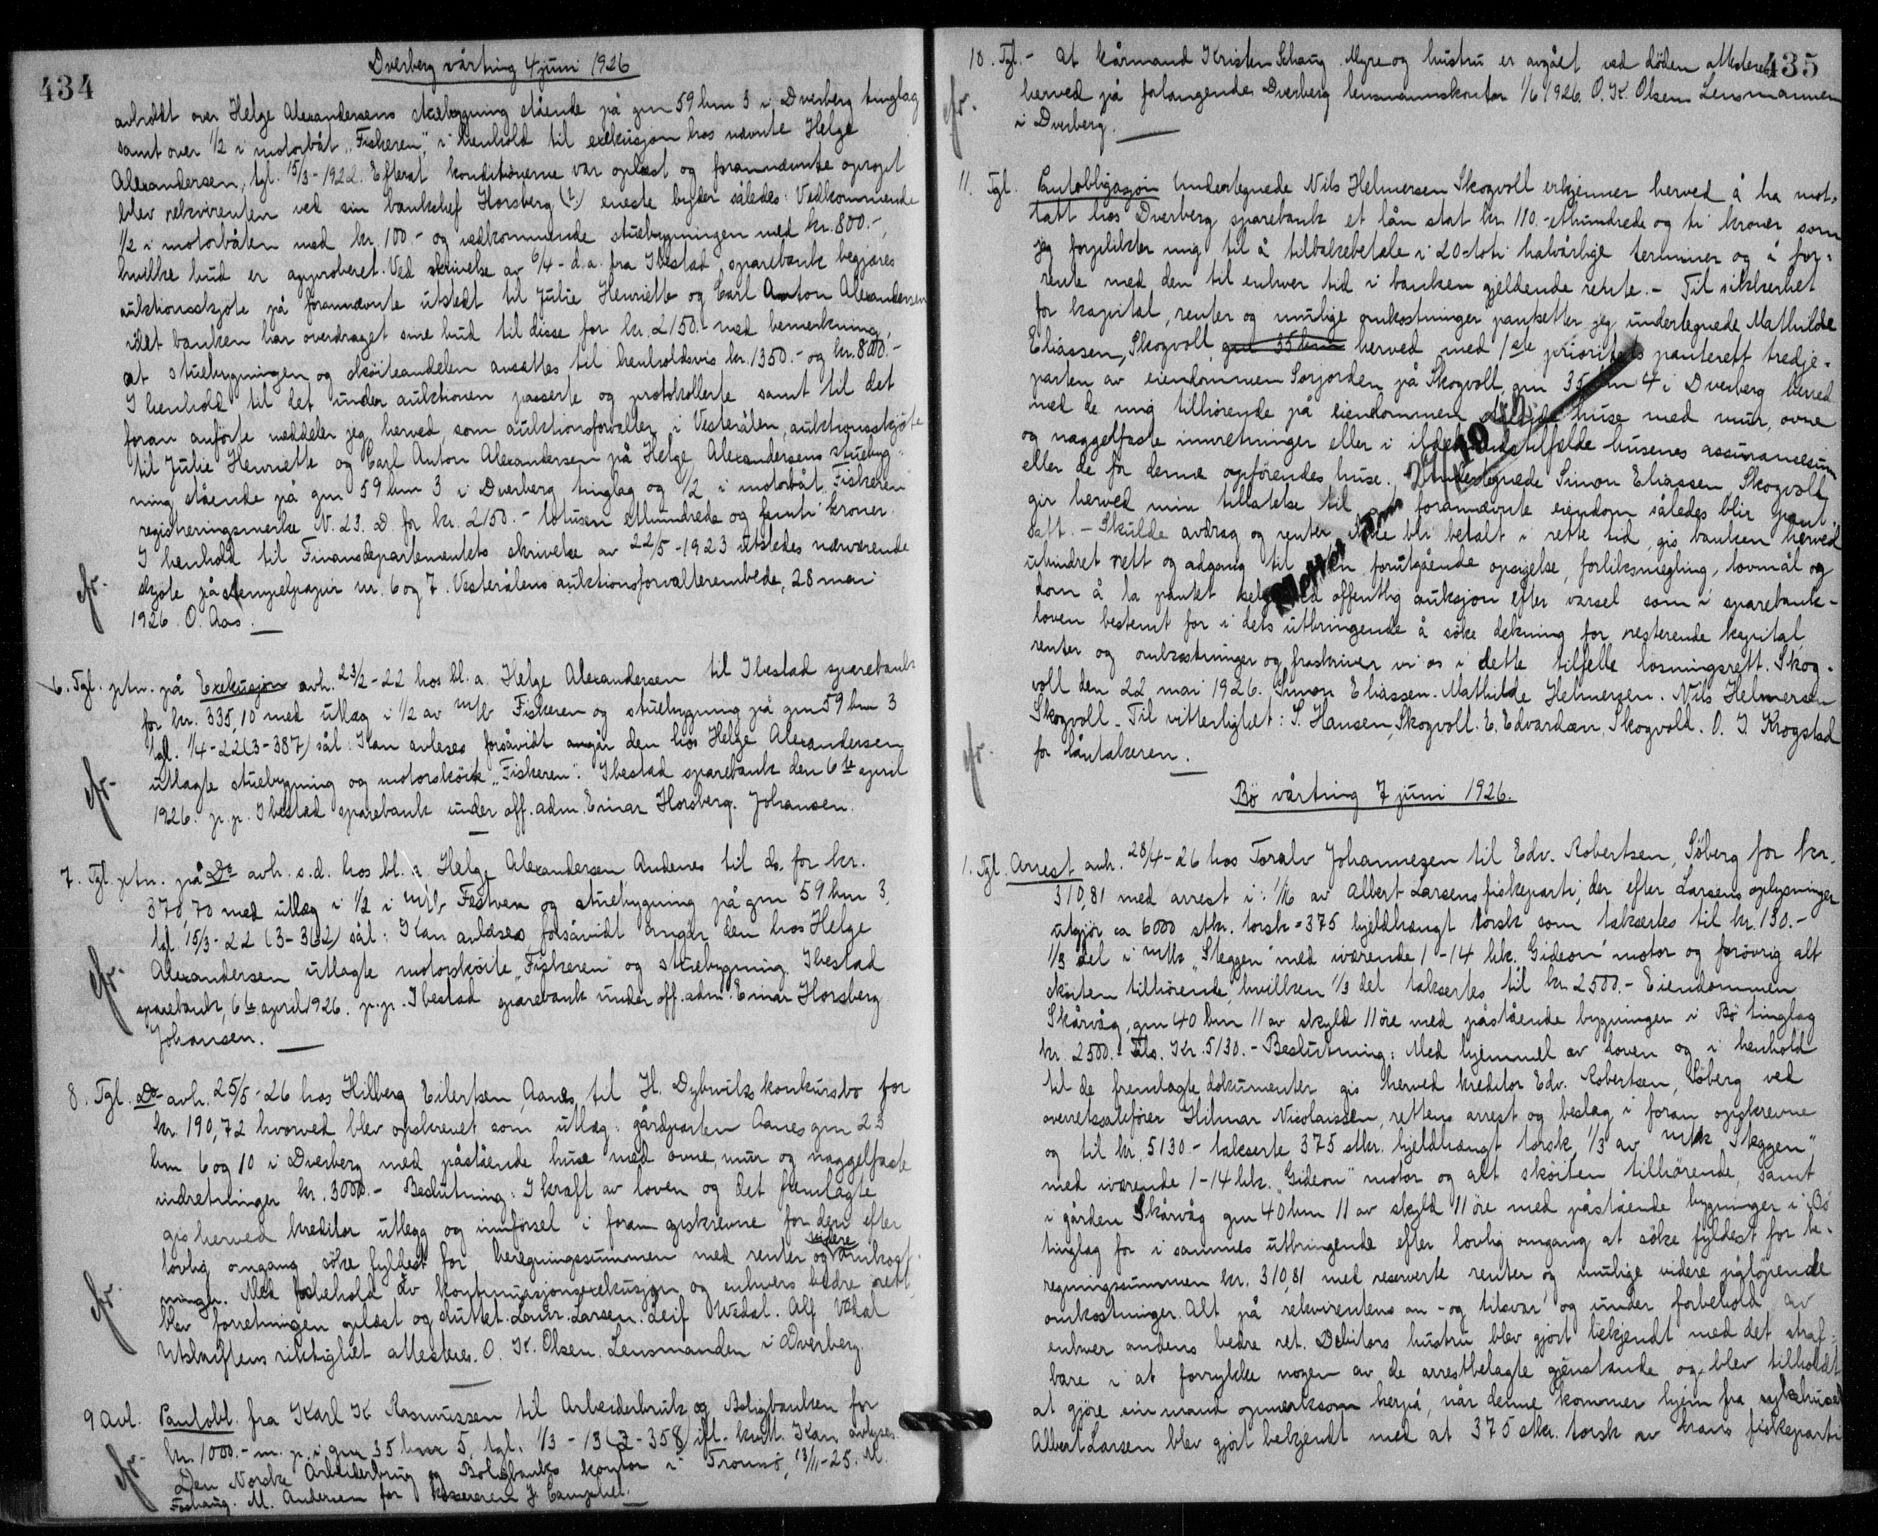 434
Dverberg vårting 4 juni 1926
avholdt over Helge Alexandersens stuebygning stående på gm 59 bnr 3 i Dverberg tinglag
samt over 1/2 i motorbåt "Fiskeren", i henhold til exekusjon hos nævnte Helge
Alexandersen, tgl. 15/3-1922. Efterat konditionerne var oplæst og forannævnte opropt
blev rekvirenten ved sin bankchef Horsberg eneste byder således: Vedkommende
1/2 i motorbåten med kr. 100.- og vedkommende stuebygningen med kr. 800.-,
hvilke bud er approberet. Ved skrivelse av 6/4- d.a. fra Ibestad sparebank begjæres
auktionsskjøte på forannævnte utstedt til Julie Henriette og Carl Anton Alexandersen
idet banken har overdraget sine bud til disse for kr. 2150.- med bemerkning,
at stuebygningen og skøiteandelen ansættes til henholdsvis kr. 1350.- og kr. 800.-
I henhold til det under auktionen passerte og protokollerte samt til det
foran anførte meddeler jeg herved som auktionsforvalter i Vesterålen, auktionsskjøte
til Julie Henriette og Carl Anton Alexandersen på Helge Alexandersens stuebyg-
ning stående på gm 59 bnr 3 i Dverberg tinglag og 1/2 i motorbåt Fiskeren
registreringsmerke N. 23. D for kr. 2150.- totusen etthundrede og femti kroner.
I henhold til Finansdepartementets skrivelse av 22/5-1923 utstedes nærværende
skjøte på stempelpapir nr. 6 og 7. Vesterålens auktionsforvalterembede, 28 mai
1926. O. Aas.
6. Tgl. ptn. på Exekusjon avh. 23/2-22 hos bl.a. Helge Alexandersen til Ibestad sparebank
for kr. 335,10 med utlæg i 1/2 av m/b Fiskeren og stuebygning på gm 59 bnr 3
tgl. 1/4-22 (3-387) sål: Kan avleses forsåvidt angår den hos Helge Alexandersen
utlagte stuebygning og motorskøite "Fiskeren". Ibestad sparebank den 6te april
1926. p.p. Ibestad sparebank under off. adm. Einar Horsberg. Johansen.
7. Tgl. ptn. på Do avh. s.d. hos bl.a Helge Alexandersen Andenes til do. for kr.
370,70 med utlæg i 1/2 i m/b Festven og stuebygning på gm 59 bnr 3,
tgl. 15/3-22 (3-362) sål: Kan avleses forsåvidt angår den hos Helge
Alexandersen utlagte motorskøite "Fiskeren" og stuebygning. Ibestad
sparebank, 6te april 1926. p.p. Ibestad sparebank under off. adm. Einar Horsberg
Johansen.
8. Tgl. Do avh. 25/5-26 hos Hilberg Eilertsen, Aanes, til H. Dybwiks konkursbo for
kr. 190,72 hvorved blev opskrevet som utlæg: gårdparten Aanes gm 23
bnr 6 og 10 i Dverberg med påstående huse med ovne, mur og naggelfaste
indretninger kr. 3000.- Beslutning: I kraft av loven og det fremlagte
gis herved kreditor utlegg og innførsel i foran opskrevne for den efter
lovlig omgang søke fyldest for beregningssummen med renter og videre omkost-
ninger. Med forbehold av kontinuasjonsexekusjon og enhvers bedre rett
blev forretningen oplæst og sluttet. Laur. Larsen. Leif Wedal. Alf Vedal
Utskriftens riktighet attesteres. O. K. Olsen. Lensmanden i Dverberg.
9 Avl. Pantobl. fra Karl K Rasmussen til Arbeiderbruk og Boligbanken for
kr. 1000.- m. p. i gm 35 bnr 5, tgl. 1/3-13 (7-358) ifl. kvitt. Kan avlyses.
Den Norske Arbeiderbrug og Boligbanks kontor i Tromsø, 13/11-25. M.
Foshaug. M. Andersen for kassereren J. Campbel.
435
10. Tgl.- At kårmand Kristen Schaug Myre og hustru er avgått ved døden attesteres
herved på forlangende. Dverberg lensmannskontor 1/6 1926. O. K. Olsen Lensmannen
i Dverberg.
11. Tgl. Pantobligasjon Undertegnede Nils Helmersen Skogvoll erkjenner herved å ha mot-
tatt hos Dverberg sparebank et lån stort kr. 110.- etthundrede og ti kroner som
jeg forplikter mig til å tilbakebetale i 20-toti halvårlige terminer og å for-
rente med den til enhver tid i banken gjeldende rente.- Til sikkerhet
for kapital, renter og mulige omkostninger pantsetter jeg undertegnede Mathilde
Eliassen, Skogvoll gm 35 bnr herved med 1ste prioritets panterett tredje-
parten av eiendommen Sorjorden på Skogvoll gm 35 bnr 4 i Dverberg herred
med de mig tilhørende på eiendommen huse med mur, ovne
og naggelfaste innretninger eller i ildebrandstilfælde husenes assuransesum
eller de for denne opførendes huse. Undertegnede Simon Eliassen Skogvoll
gir herved min tillatelse til forannævnte eiendom således blir pant-
satt.- Skulde avdrag og renter ikke bli betalt i rette tid, gis banken herved
uhindret rett og adgang til uten forutgående opsigelse, forliksmegling, lovmål og
dom å la pantet selge ved offentlig auksjon efter varsel som i sparebank-
loven bestemt for i dets utbringende å søke dekning for resterende kapital
renter og omkostninger og fraskriver vi os i dette tilfelle løsningsrett. Skog-
voll den 22 mai 1926. Simon Eliassen. Mathilde Helmersen. Nils Helmersen
Skogvoll. Til vitterlighet: S. Hansen, Skogvoll. E. Edvardsen, Skogvold. O. J. Krogstad
for låntakeren.
Bø vårting 7 juni 1926.
1. Tgl. Arrest avh. 28/4-26 hos Toralv Johannesen til Edv. Robertsen, Søberg for kr.
310,81 med arrest i: 1/16 av Albert Larsens fiskeparti, der efter Larsens oplysninger
utgjør ca 6000 stkr. torsk = 375 hjeldhængt torsk som takseres til kr. 130.-
1/3 del i m/k "Skeggen" med iværende 1-14 hk. Gideon motor og forøvrig alt
skøiten tilhørende, hvilken 1/3 del taksertes til kr 2500.- Eiendommen
Skårvåg, gm 40 bnr 11 av skyld 11 øre med påstående bygninger i Bø tinglag
kr. 2500.- Tils. Kr. 5130.- Beslutning: Med hjemmel av loven og i henhold
til de fremlagte dokumenter gis herved kreditor Edv. Robertsen, Søberg ved
overretssakfører Hilmar Nicolaissen, rettens arrest og beslag i foran opskrevne
og til kr. 5130.- takserte 375 stkr. hjeldhængt torsk, 1/3 av m/k "Skeggen"
med iværende 1-14 hk. "Gideon" motor og alt skøiten tilhørende, samt
i gården Skårvåg gm 40 bnr 11 av skyld 11 øre med påstående bygninger i Bø
tinglag for i sammes utbringende efter lovlig omgang at søke fyldest for be-
regningssummen kr. 310,81 med reserverte renter og mulige videre påløpende
omkostninger. Alt på rekvirentens an- og tilsvar og under forbehold av
enhver andens bedre ret. Debitors hustru blev gjort bekjendt med det straf-
bare i at forrykke nogen av de arrestbelagte gjenstande og blev tilholdt
at gjøre sin mand opmerksom herpå, når denne kommer hjem fra sykehuset
Albert Larsen blev gjort bekjendt med at 375 stkr. torsk av hans fiskeparti